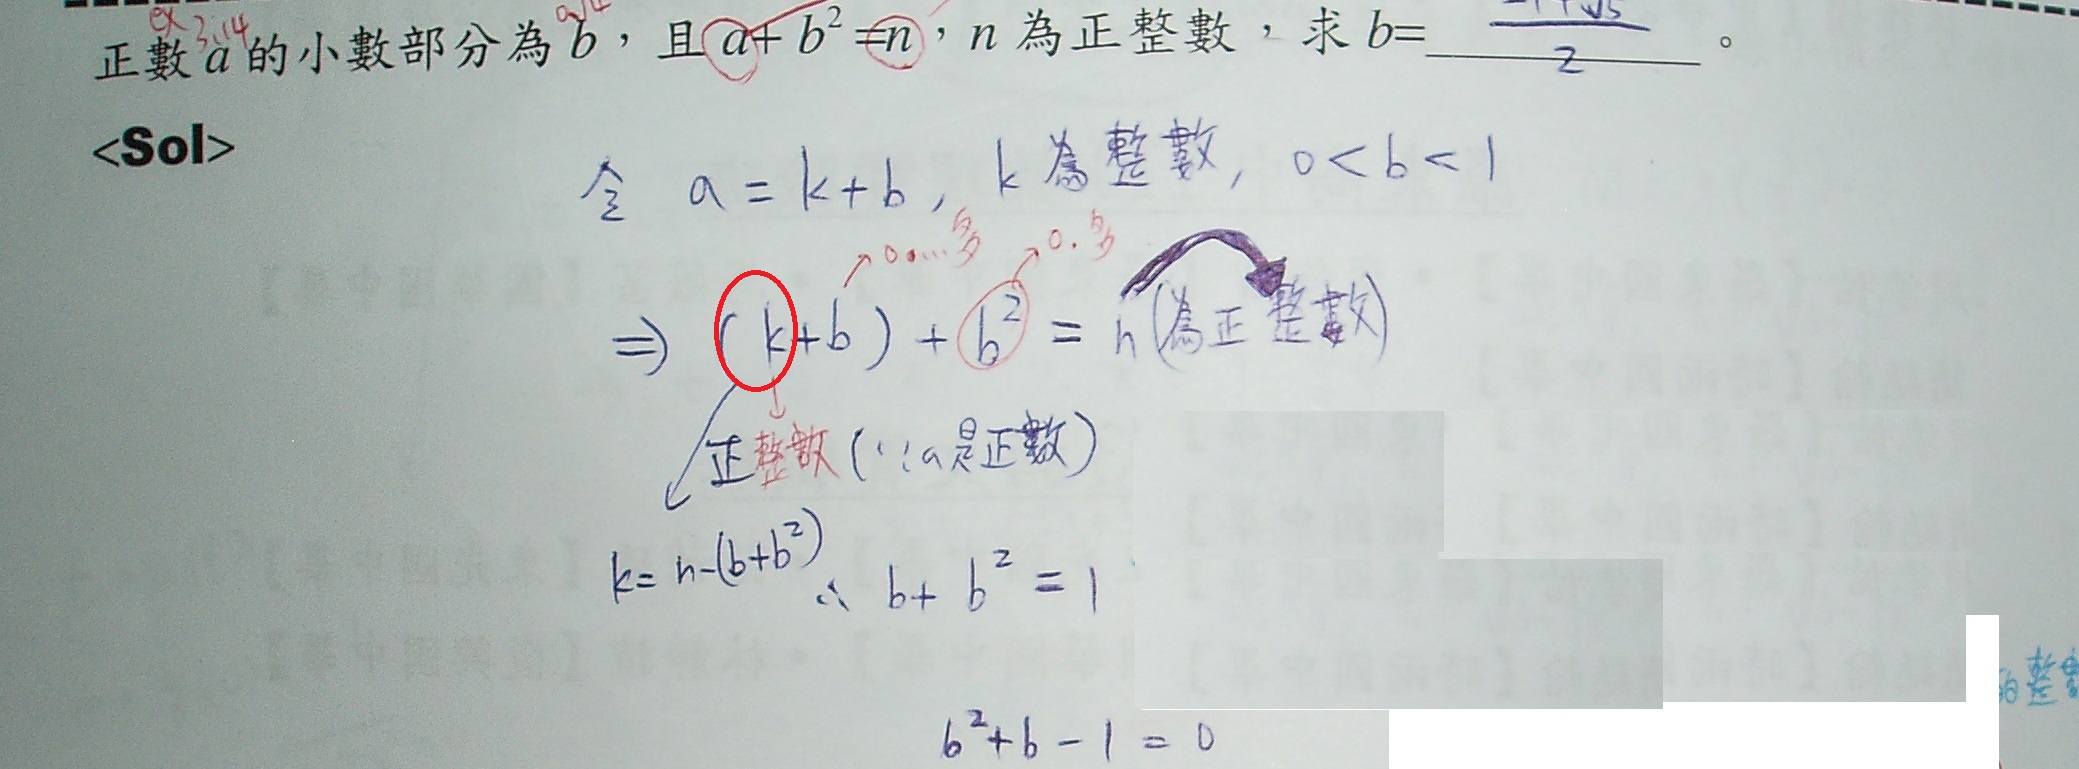 ex 3.14
正數 a 的小數部分為 b,且 a+ b² =n,n 為正整數,求 b= -1+√5 / 2 。
<Sol>
令 a = k+b, k 為整數, 0<b<1
0....多 0.多
⇒ (k+b) + b² = n(為正整數)
正整數(∵a是正數)
k= n-(b+b²) ∴ b+ b² = 1
b²+b-1 = 0